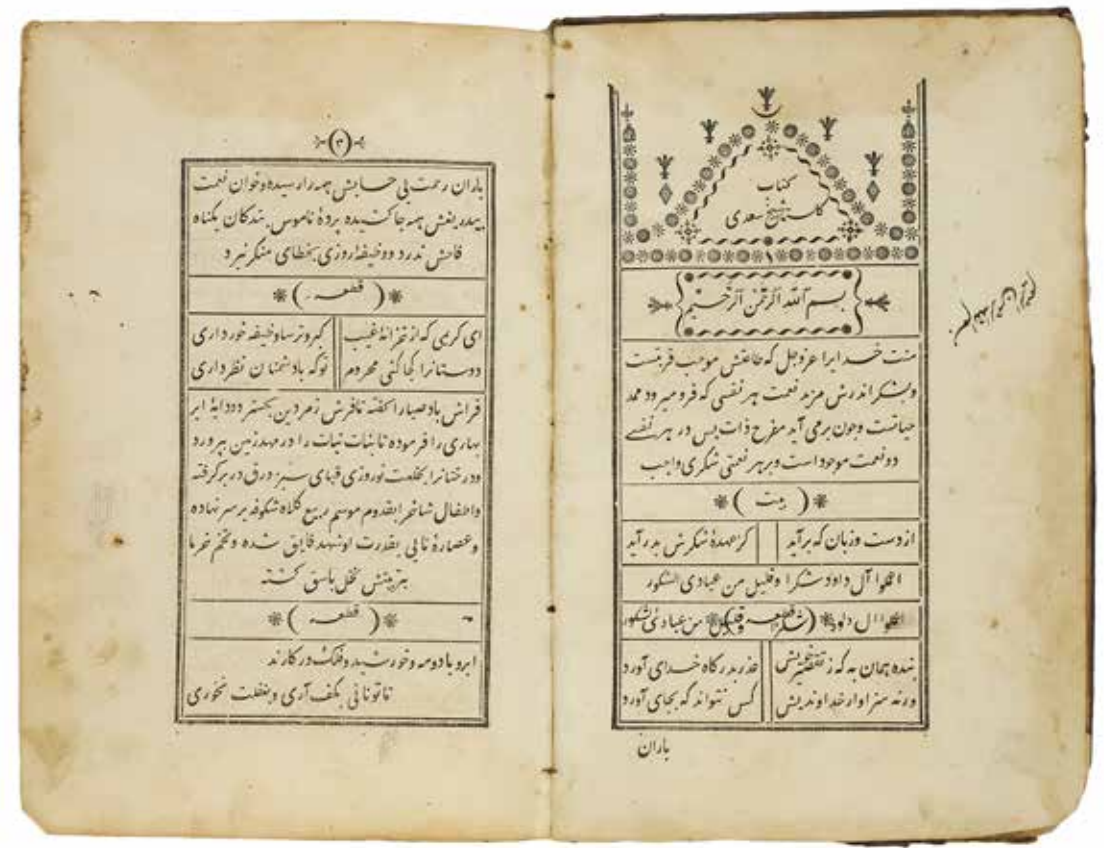 کتاب
کلستان شیخ سعدی
۱
بسم الله الرحمن الرحیم
منت خدایرا عزوجل که طاعتش موجب قربتست
وبشکر اندرش مزید نعمت هر نفسی که فرو میرود ممد
حیاتست وچون برمی آید مفرح ذات پس در هر نفسی
دو نعمت موجود است وبر هر نعمتی شکری واجب
( بیت )
از دست وزبان که برآید کز عهدۀ شکرش بدر آید
اعملوا آل داود شکرا وقلیل من عبادی الشکور
اعملوا آل داود شکرا وقلیل من عبادی الشکور
( قطعه )
بنده همان به که ز تقصیر خویش عذر بدرکاه خدای آورد
ورنه سزاوار خداوندیش کس نتواند که بجای آورد
باران
بسم الله الرحمن الرحیم
(۳)
باران رحمت بی حسابش همه را رسیده وخوان نعمت
بیدریغش همه جا کشیده پردۀ ناموس بندکان بکناه
فاحش ندرد ووظیفۀ روزی بخطای منکر نبرد
( قطعه )
ای کریمی که از خزانۀ غیب کبر وترسا وظیفه خور داری
دوستانرا کجا کنی محروم توکه با دشمنان نظر داری
فراش باد صبارا کفته تا فرش زمردین بکسترد ودایۀ ابر
بهاری را فرموده تا بنات نبات را در مهد زمین بپرورد
ودرختانرا بخلعت نوروزی قبای سبز ورق در بر کرفته
واطفال شاخرا بقدوم موسم ربیع کلاه شکوفه بر سر نهاده
وعصارۀ نایی بقدرت او شهد فایق شده وتخم خرما
بتربیتش نخل باسق کشته
( قطعه )
ابر وباد ومه وخورشید وفلک در کارند
تا تو نانی بکف آری وبغفلت نخوری